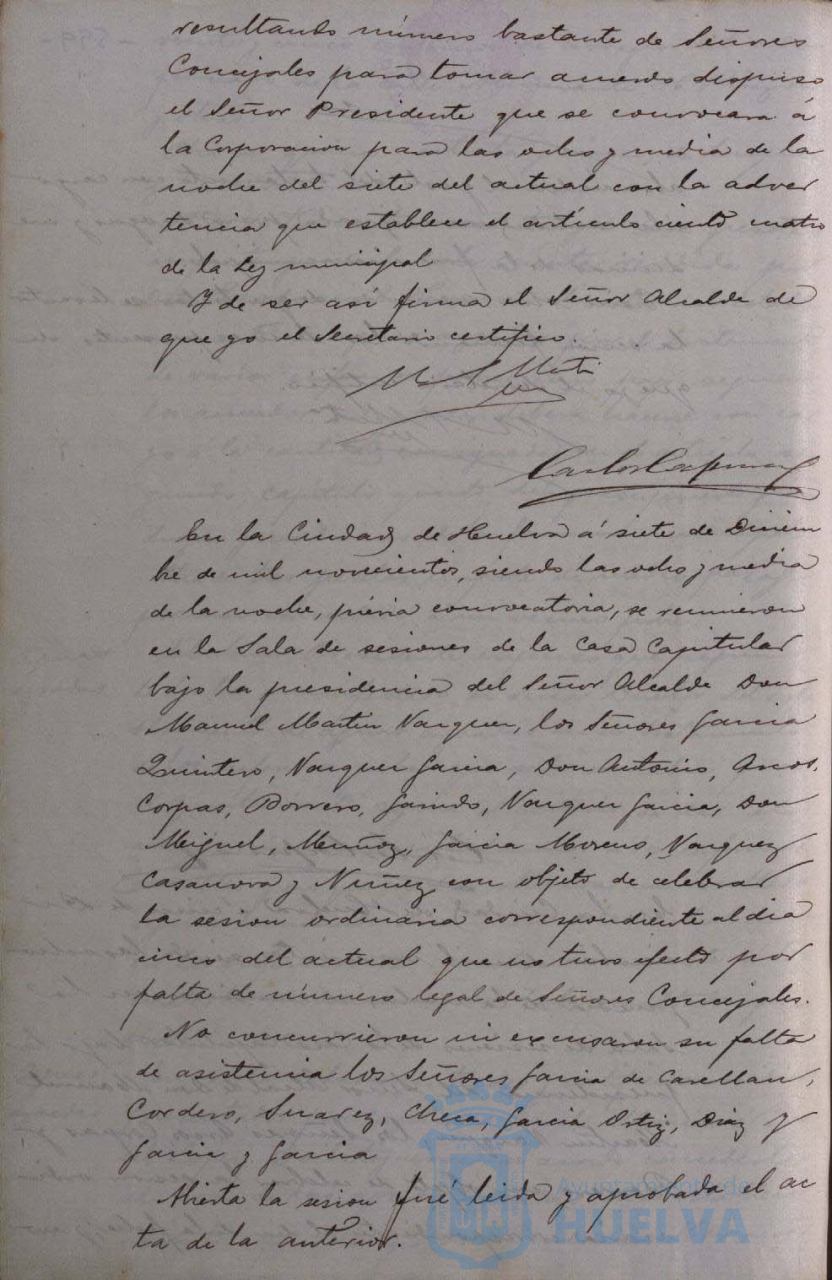 resultando número bastante de Señores
Concejales para tomar acuerdo dispuso
el Señor Presidente que se convocara á
la Corporacion para las ocho y media de la
noche del siete del actual con la adver
tencia que establece el artículo ciento cuatro
de la Ley municipal
Y de ser así firma el Señor Alcalde de
que yo el Secretario certifico.
En la Ciudad de Huelva á siete de Diciem
bre de mil novecientos, siendo las ocho y media
de la noche, prévia convocatoria, se reunieron
en la Sala de sesiones de la Casa Capitular
bajo la presidencia del Señor Alcalde Don
Manuel Martin Vazquez, los Señores Garcia
Quintero, Vazquez Garcia, Don Antonio,
Corpas, Borrero, Garrido, Vazquez Garcia, Don
Miguel, Muñoz, Garcia Moreno, Vazquez
Casanova y Nuñez con objeto de celebrar
la sesion ordinaria correspondiente al dia
cinco del actual que no tuvo efecto por
falta de número legal de Señores Concejales.
No concurrieron ni excusaron su falta
de asistencia los Señores Garcia de
Cordero, Suarez, Checa, Garcia Ortiz, Diaz y
Garcia y Garcia
Abierta la sesion fué leida y aprobada el ac
ta de la anterior.
Ayuntamiento de
HUELVA